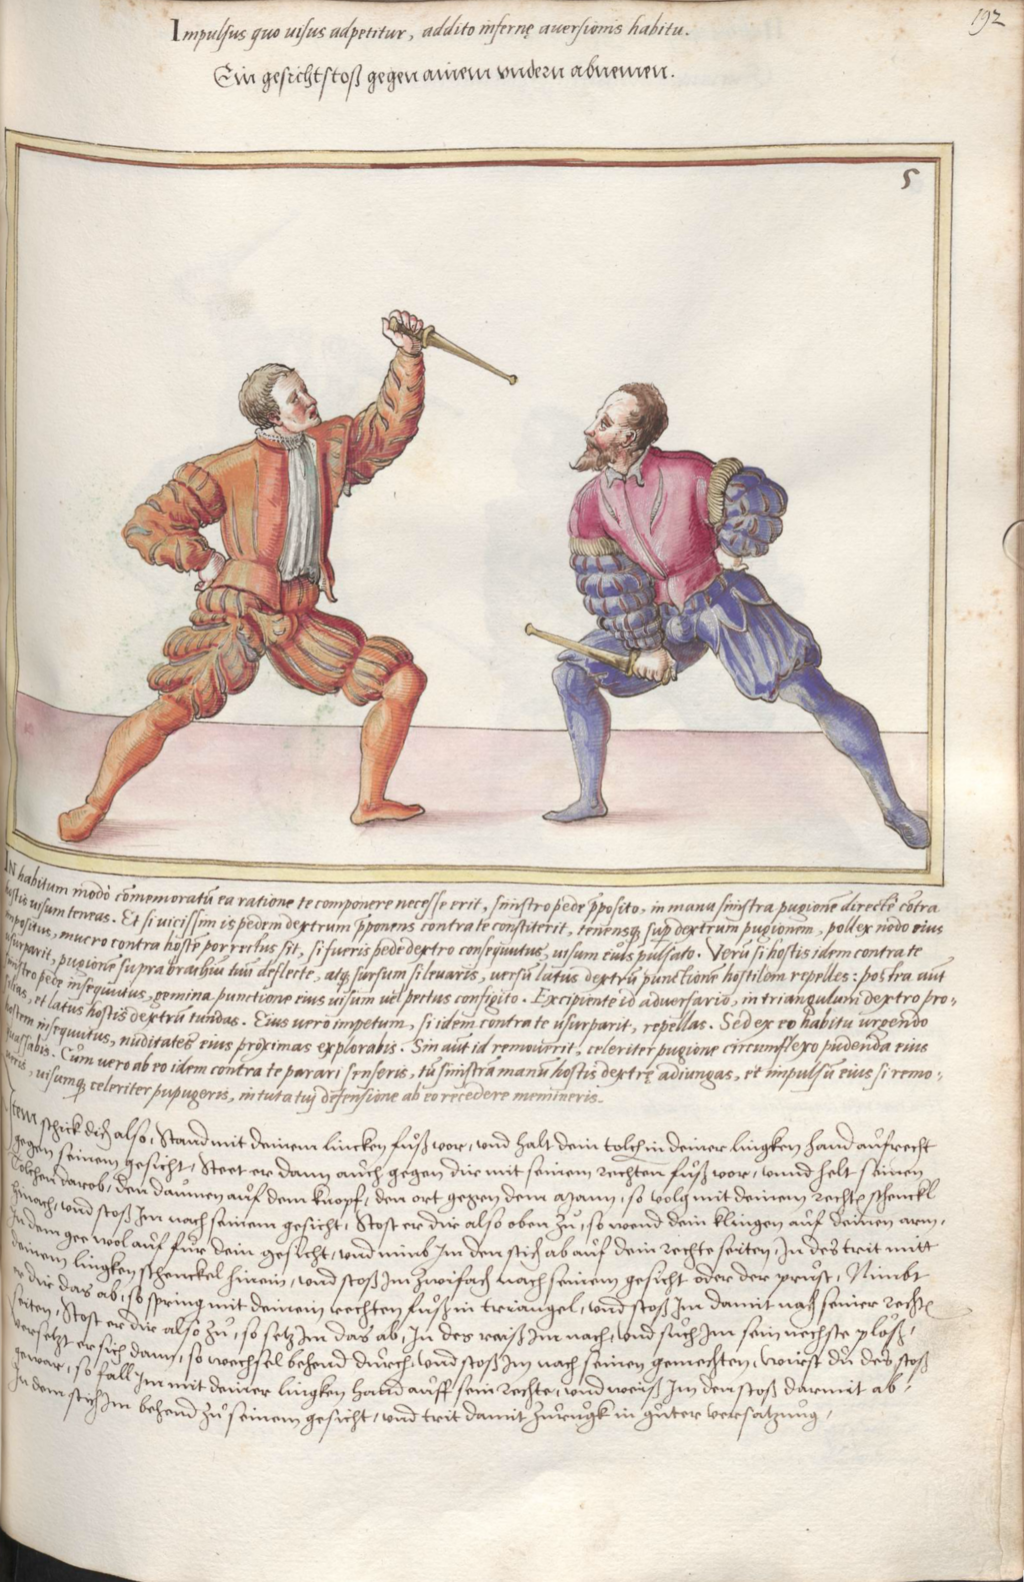 192
Impulsus quo uisus adpetitur, addito infernę auersionis habitu.
Ein gesichtstoß gegen ainem vndern abnemen.
5
IN habitum modò com̄emoratū ea ratione te componere necesse erit, sinistro pede p̄posito, in manu sinistra pugionē directè cōtra
hostis uisum teneas. Et si uicissim is pedem dextrum p̄ponens contra te constiterit, tenensq̨ sup dextrum pugionem, pollex nodo eius
impositus, mucro contra hostē porrectus sit, si fueris pede dextro consequutus, uisum eius pulsato. Verū si hostis idem contra te
usurparit, pugionē supra brachiū tuū deflecte, atq̨ sursum si leuaris, uersū latus dextrū punctionē hostilem repelles: postea aūt
sinistro pede insequutus, gemina punctione eius uisum uel pectus configito. Excipiente id aduersario, in triangulum dextro pro-
silias, et latus hostis dextrū tundas. Eius uero impetum, si idem contra te usurparit, repellas. Sed ex eo habitu urgendo
hostem insequutus, nuditates eius proximas explorabis. Sin aūt id remouerit, celeriter pugione circumflexo pudenda eius
quassabis. Cùm uero ab eo idem contra te parari senseris, tū sinistrā manū hostis dextrę adiungas, et impulsū eius si remo-
ueris, uisumq̨ celeriter pupugeris, in tuta tui defensione ab eo recedere memineris.
Item schick dich also, Stand mit deinem lincken fuß vor, vnd halt dein tolch in deiner lingken hand aufrecht
gegen seinem gesicht, Steet er dann auch gegen dir mit seinem rechten fuß vor, vnnd helt seinen
Tolchen darob, den daumen auf dem knopf, den ort gegen dem Mann, so volg mit deinem rechtē schenckl
hinach, vnd stoß Im nach seinem gesicht, Stost er dir also oben zu, so wend dein klingen auf deinen arm,
In dem gee wol auf für dein gesicht, vnd nimb Im den stich ab auf dein rechte seiten, In des trit mitt
deinem lingken schenckel hinein, vnd stoß Im zwifach nach seinem gesicht oder der prust, Nimbt
er dir das ab, so spring mit deinem rechten fuß in triangel, vnd stoß Im damit nach seiner rechtē
seiten, Stost er dir also zu, so setz Im das ab, In des raiß Im nach, vnd such Im sein nechste plöß,
versetzt er sich dann, so wechsel behend durch, vnd stoß Im nach seinen gemechten, Wirst du des stoß
gewar, so fall Im mit deiner lingken hand auff sein rechte, vnd weiß Im den stoß darmit ab,
In dem stich Im behend zu seinem gesicht, vnd trit damit zurugk in guter versatzung,